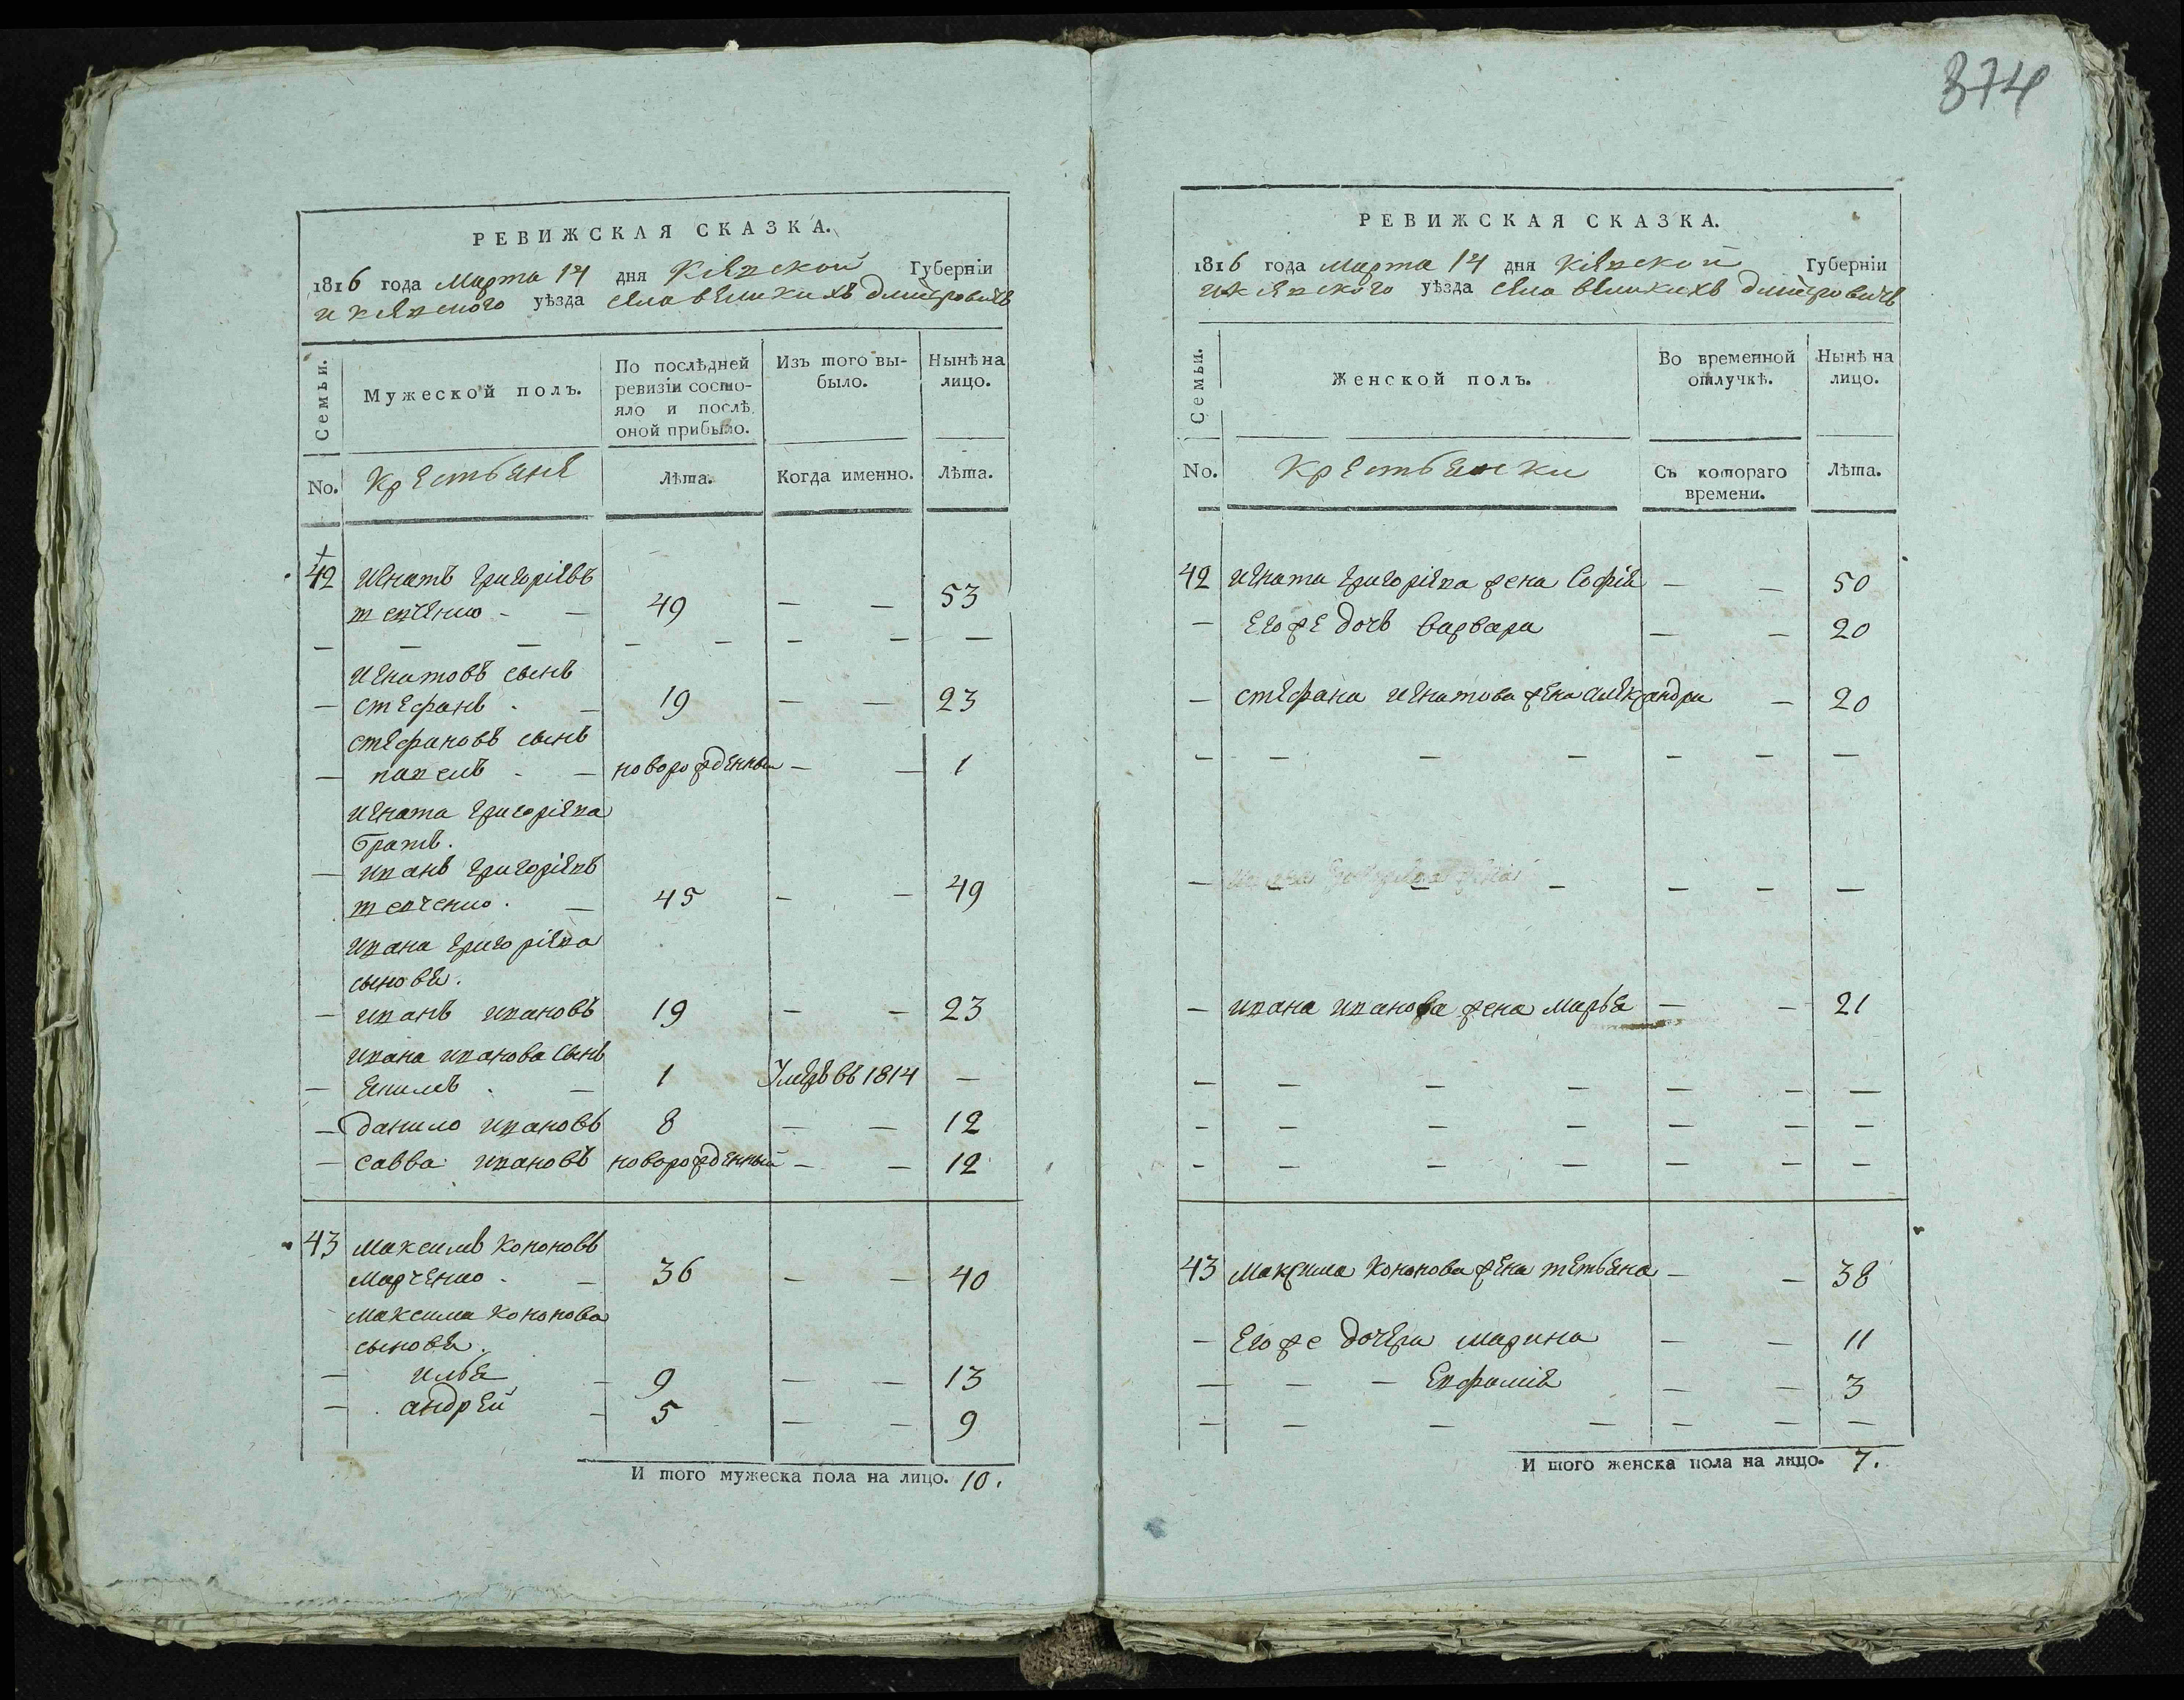 374
РЕВИЖСКАЯ СКАЗКА.
1816 года Марта 14 дня Кіевской Губерніи
и Кіевского уѣзда села великихъ дмитровичъ
Семьи.
Мужеской полъ.
По послѣдней ревизіи состояло и послѣ оной прибыло.
Изъ того выбыло.
Нынѣ на лицо.
No. Крестьяне Лѣта. Когда именно. Лѣта.
42 Игнатъ григоріевъ
49 — — 53
— — — — — — — —
игнатовъ сынъ
— стефанъ - — 19 — — 23
стефановъ сынъ
— павелъ - — новорожденный — — 1
игната григоріева
братъ.
— иванъ григоріевъ
45 - — 49
ивана григоріева
сыновья.
— иванъ ивановъ 19 — — 23
ивана иванова сынъ
— - — 1 Умеръ въ 1814 —
— данило ивановъ 8 — — 12
— савва ивановъ новорожденный — — 12
43 Максимъ Кононовъ
Марченко - — 36 — — 40
Максима Кононова
сыновья.
— илья — 9 — — 13
— андрей — 5 — — 9
И того мужеска пола на лицо. 10.
РЕВИЖСКАЯ СКАЗКА.
1816 года Марта 14 дня Кіевской Губерніи
и Кіевского уѣзда села великихъ дмитровичъ
Семьи.
Женской полъ.
Во временной отлучкѣ.
Нынѣ на лицо.
No. Крестьянки Съ котораго времени. Лѣта.
42 игната григоріева жена Софія — — 50
— его же дочь варвара — — 20
— стефана игнатова жена александра — 20
— — — — — — —
— — — — — —
— ивана иванова жена марья — — 21
— — — — — — —
— — — — — — —
— — — — — — —
43 Максима Кононова жена татьяна — — 38
— его же дочери марина — — 11
— — — Евфимія — — 3
— — — — — — —
И того женска пола на лицо. 7.